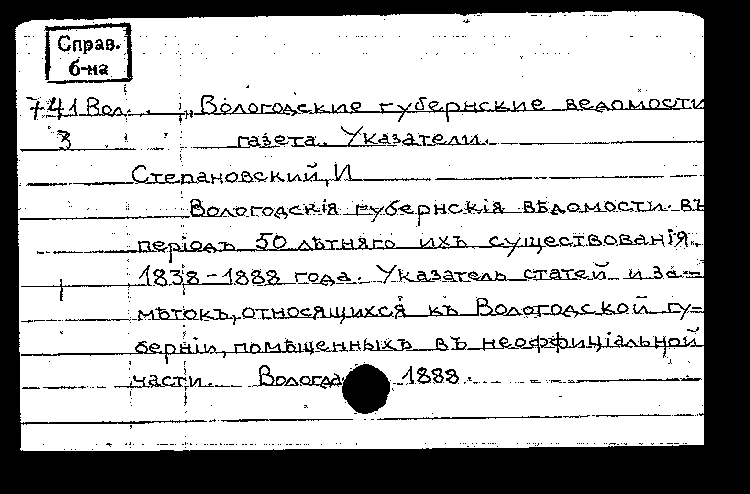 Справ.
б-ка
741 Вол. „Вологодские губернские ведомости
3 газета. Указатели.
Степановский, И
Вологодскія губернскія вѣдомости. въ
періодъ 50 лѣтняго ихъ существованія.
1838-1888 года. Указатель статей и за-
мѣтокъ, относящихся къ Вологодской гу-
берніи, помѣщенныхъ въ неоффиціальной
части. Вологда 1888.